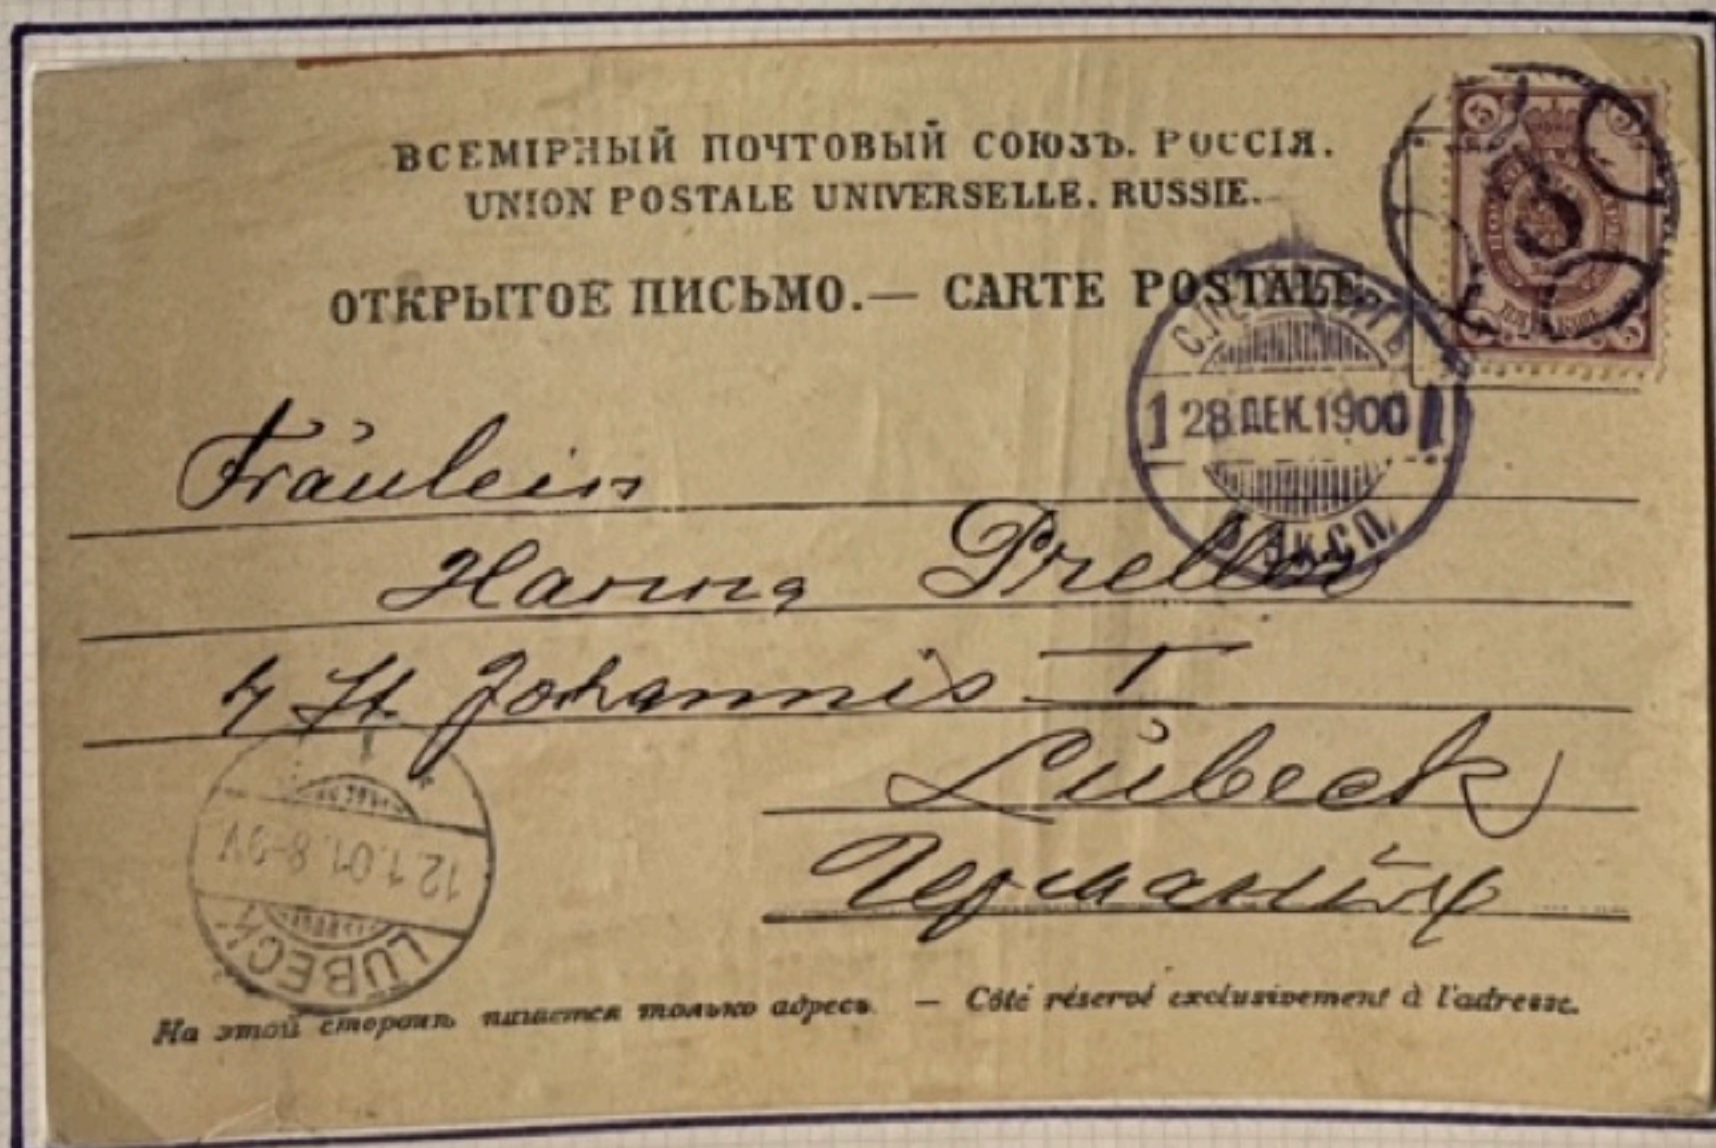 ВСЕМІРНЫЙ ПОЧТОВЫЙ СОЮЗЪ. РОССІЯ.
UNION POSTALE UNIVERSELLE. RUSSIE.
ОТКРЫТОЕ ПИСЬМО.— CARTE POSTALE.
5
С.ПЕТЕРБУРГЪ
1 28 ДЕК.1900 1
ЭКСП.
Fräulein
Hanna Preller
4 St. Johannis I
Lübeck
Германія
12.1.01.8-9V
LÜBECK
На этой сторонѣ пишется только адресъ. — Côté réservé exclusivement à l'adresse.